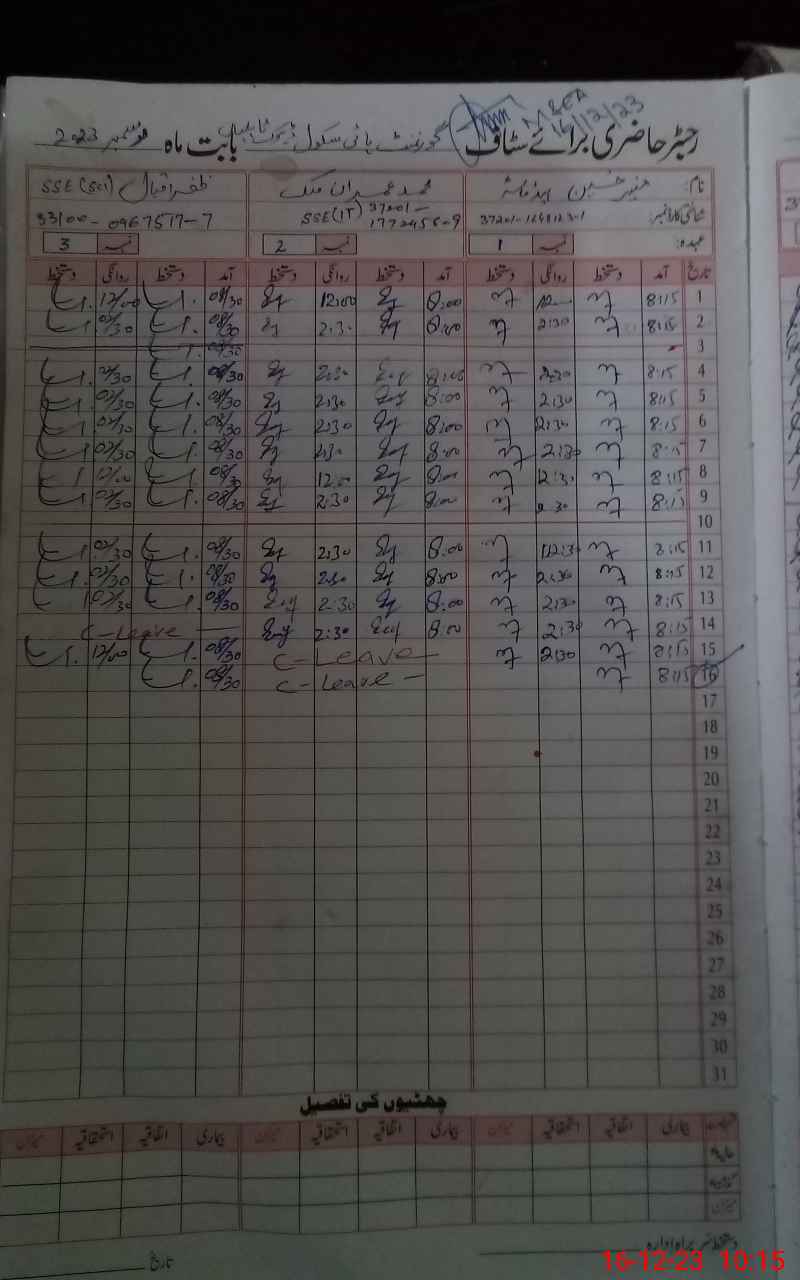 M&EA
16/12/23
رجسٹر حاضری برائے سٹاف گورنمنٹ ہائی سکول بابت ماہ دسمبر 2023
نام: منیر حسین ہیڈ ماسٹر محمد عمران ملک ظفر اقبال SSE (Sci)
شناختی کارڈ نمبر: SSE (IT) 37201-1772456-9 33100-0967517-7
عہدہ: نمبر 1 نمبر 2 نمبر 3
تاریخ آمد دستخط روانگی دستخط آمد دستخط روانگی دستخط آمد دستخط روانگی دستخط
1 8:15 8:00 12:00 08/30 12/00
2 8:15 2:30 8:00 2:30 08/30 02/30
3 08/30
4 8:15 2:30 8:00 2:30 08/30 02/30
5 8:15 2:30 8:00 2:30 08/30 02/30
6 8:15 2:30 8:00 2:30 08/30 02/30
7 8:15 2:30 8:00 2:30 08/30 02/30
8 8:15 12:30 8:00 12:00 08/30 12/00
9 8:15 2:30 8:00 2:30 08/30 02/30
10
11 8:15 8:00 2:30 08/30 02/30
12 8:15 2:30 8:00 2:30 08/30 02/30
13 8:15 2:30 8:00 2:30 08/30 02/30
14 8:15 2:30 8:00 2:30 C-Leave
15 8:15 2:30 C-Leave 08/30 12/00
16 8:15 C-Leave 08/30
17
18
19
20
21
22
23
24
25
26
27
28
29
30
31
چھٹیوں کی تفصیل
بیماری اتفاقیہ استحقاقیہ میزان بیماری اتفاقیہ استحقاقیہ میزان بیماری اتفاقیہ استحقاقیہ میزان
میزان
دستخط سربراہ ادارہ
تاریخ
16-12-23 10:15